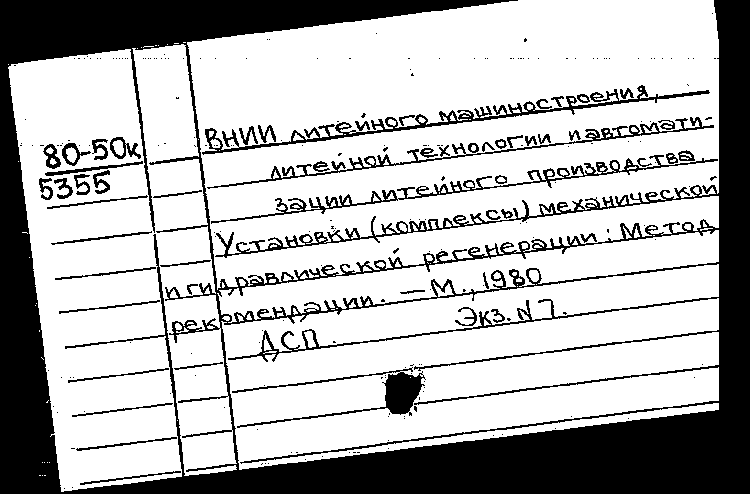 80-50к
5355
ВНИИ литейного машиностроения,
литейной технологии и автомати-
зации литейного производства.
Установки (комплексы) механической
и гидравлической регенерации: Метод.
рекомендации. — М., 1980
ДСП. Экз. N 7.